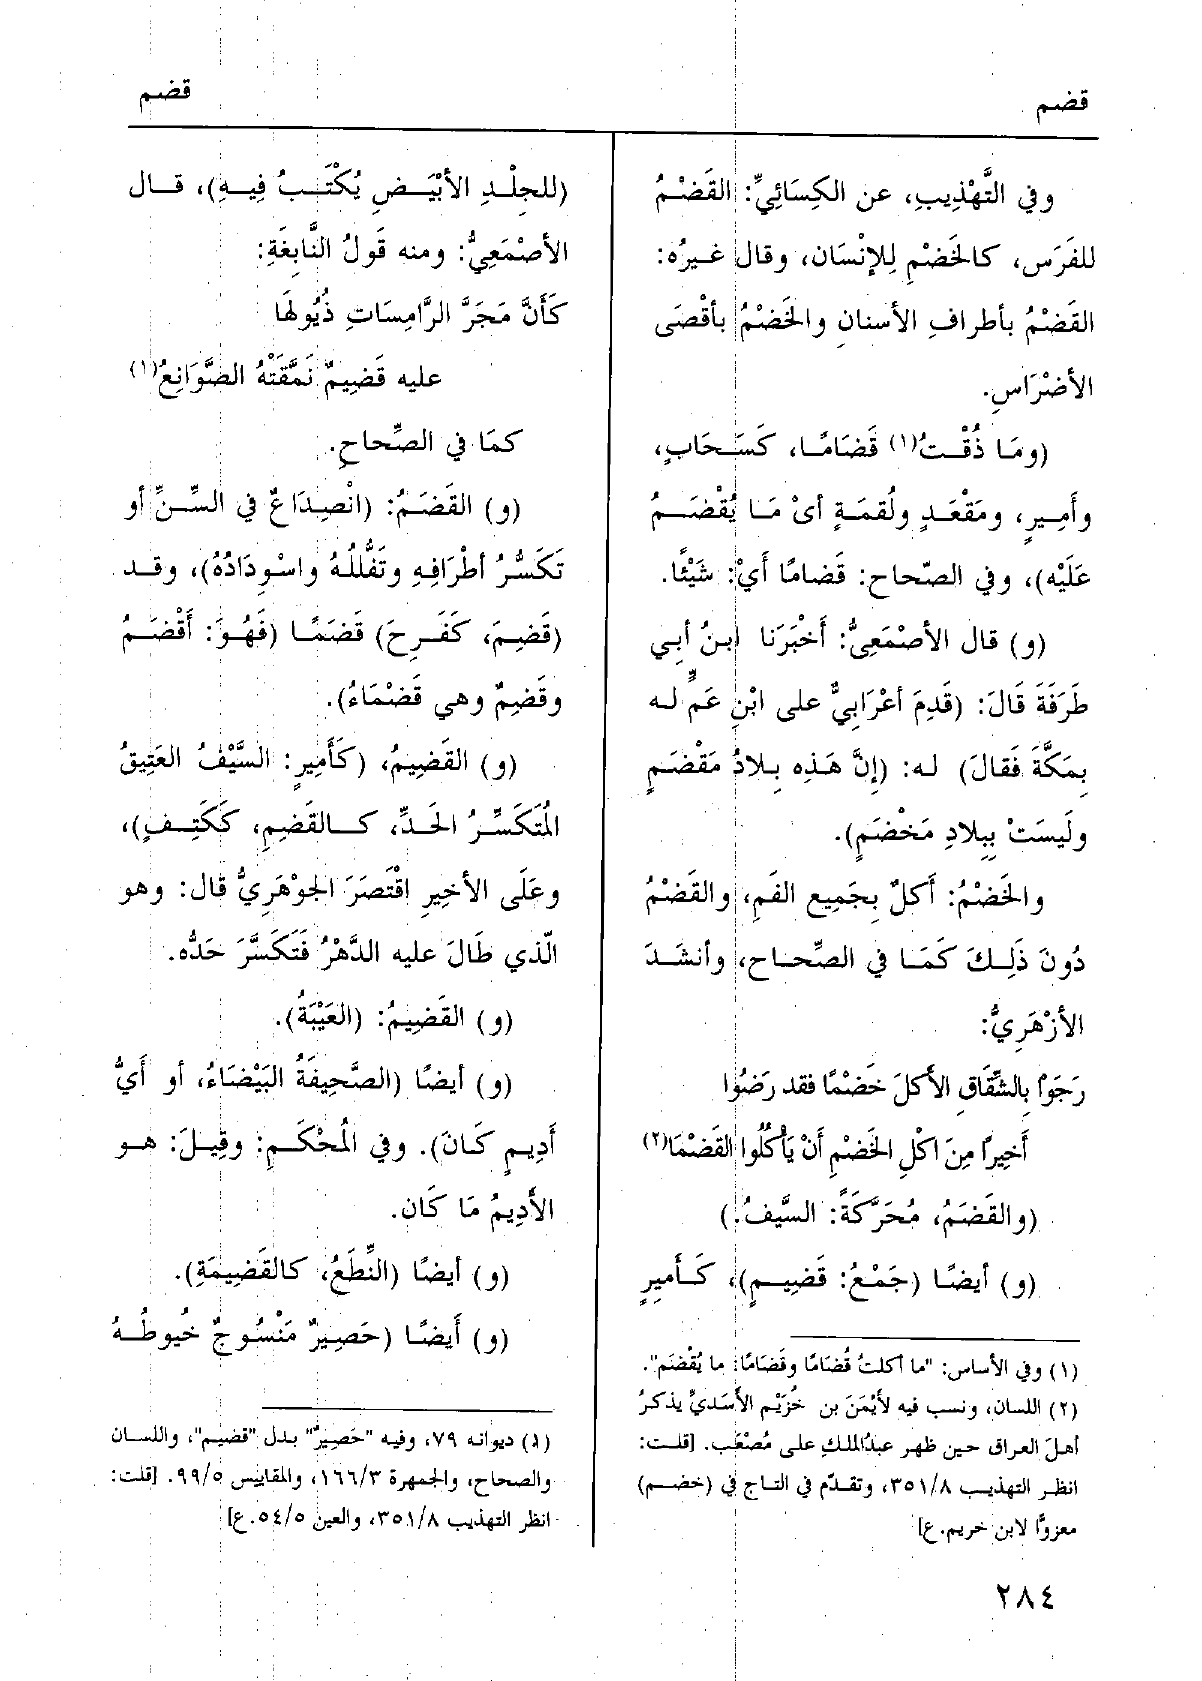 قضم
قضم
وفي التَّهْذِيبِ، عن الكِسَائِيِّ: القَضْمُ
للفَرَسِ، كالخَضْمِ لِلإنْسَان، وقال غيرُه:
القَضْمُ بأطرافِ الأسنانِ والخَضْمُ بأقْصَى
الأضْرَاسِ.
(ومَا ذُقْتُ(١) قَضَامًا، كَسَحَابٍ،
وأَمِيرٍ، ومَقْعَدٍ ولُقمَةٍ أىْ مَا يُقْضَمُ
عَلَيْه)، وفي الصّحاح: قَضامًا أَيْ: شَيْئًا.
(و) قال الأصْمَعِىُّ: أَخْبَرَنَا ابنُ أبِي
طَرَفَةَ قَالَ: (قَدِمَ أعْرَابِيٌّ على ابْنِ عَمٍّ له
بِمَكَّةَ فَقالَ) له: (إنَّ هَذِه بِلادُ مَقْضَمٍ
ولَيسَتْ بِبِلادِ مَخْضَمٍ).
والخَضْمُ: أَكلٌ بِجَمِيع الفَمِ، والقَضْمُ
دُونَ ذَلِكَ كَمَا في الصِّحاح، وأنشَدَ
الأزْهَرِيُّ:
رَجَوْا بِالشِّقَاقِ الأكلَ خَضْمًا فقد رَضُوا
أَخِيرًا مِنَ اكْلِ الخَضْمِ أَنْ يَأْكُلُوا القَضْمَا(٢)
(والقَضَمُ، مُحَرَّكَةً: السَّيفُ.)
(و) أيضًا (جَمْعُ: قَضِيمٍ)، كَأَمِيرٍ
(١) وفي الأساس: "ما أكلتُ قُضَامًا وقَضَامًا: ما يُقْضَم".
(٢) اللسان، ونسب فيه لأيْمَنَ بن خُزَيْم الأَسَديِّ يذكرُ
أهلَ العراق حين ظهر عبدُالملكِ على مُصْعَب. [قلت:
انظر التهذيب ٣٥١/٨، وتقدّم في التاج في (خضم)
معزوًّا لابن خريم.ع]
(للجِلْدِ الأَبْيَضِ يُكْتَبُ فِيهِ)، قال
الأصْمَعِيُّ: ومنه قَولُ النَّابِغَةِ:
كَأَنَّ مَجَرَّ الرَّامِسَاتِ ذُيُولَهَا
عليه قَضِيمٌ نَمَّقَتْهُ الصَّوَانِعُ(١)
كمَا في الصِّحاحِ.
(و) القَضَمُ: (انْصِدَاعٌ في السِّنِّ أو
تَكَسُّرُ أطْرَافِهِ وتَفُّللُهُ واسْوِدَادُهُ)، وقد
(قَضِمَ، كَفَرِحَ) قَضَمًا (فَهُوَ: أَقْضَمُ
وقَضِمٌ وهي قَضْمَاءُ).
(و) القَضِيمُ، (كَأَمِيرٍ: السَّيْفُ العَتِيقُ
المُتَكَسِّرُ الحَدِّ، كالقَضِمِ، كَكَتِفٍ)،
وعَلَى الأخِيرِ اقْتَصَرَ الجوْهَرِيُّ قال: وهو
الّذي طَالَ عليه الدَّهْرُ فَتَكَسَّرَ حَدُّه.
(و) القَضِيمُ: (العَيْبَةُ).
(و) أيضًا (الصَّحِيفَةُ البَيْضَاءُ، أو أَيُّ
أَدِيمٍ كَانَ). وفي المُحْكَمِ: وقِيلَ: هو
الأَدِيمُ مَا كَان.
(و) أيضًا (النِّطَعُ، كالقَضِيمَةِ).
(و) أَيضًا (حَصِيرٌ مَنْسُوجٌ خُيوطُهُ
(١) ديوانه ٧٩، وفيه "حَصِيرٌ" بدل "قضيم"، واللسان
والصحاح، والجمهرة ١٦٦/٣، والمقاييس ٩٩/٥. [قلت:
انظر التهذيب ٣٥١/٨، والعين ٥٤/٥.ع]
٢٨٤